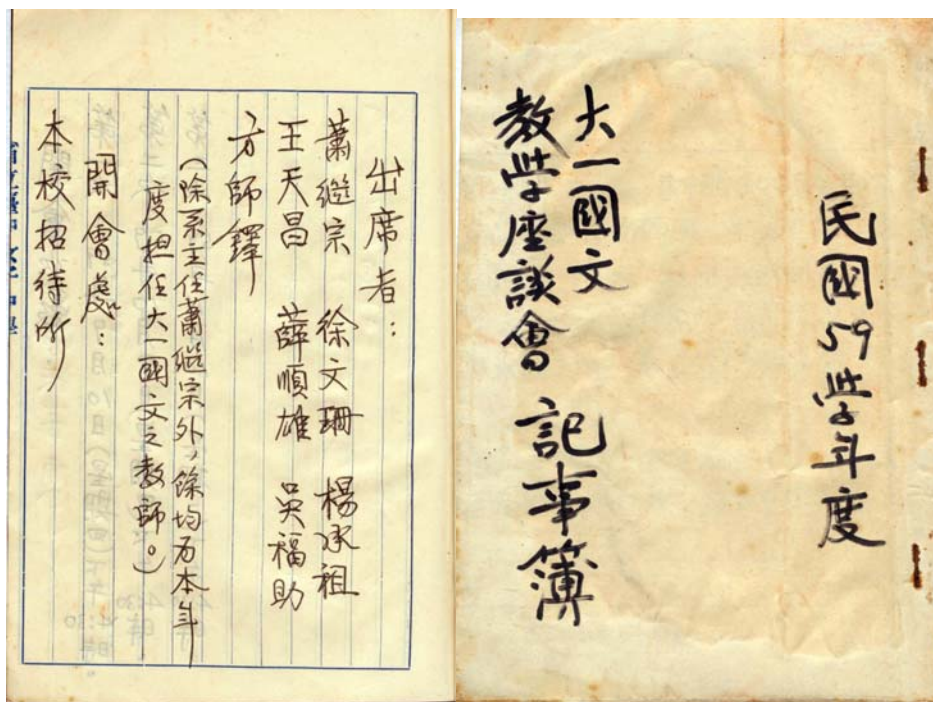 民國59学年度
大一國文
教学座談會 記事簿
出席者：
蕭繼宗 徐文珊 楊承祖
王天昌 薛順雄 吳福助
方師鐸
（除系主任蕭繼宗外，餘均为本年
度担任大一國文之教師。）
開會處：
本校招待所